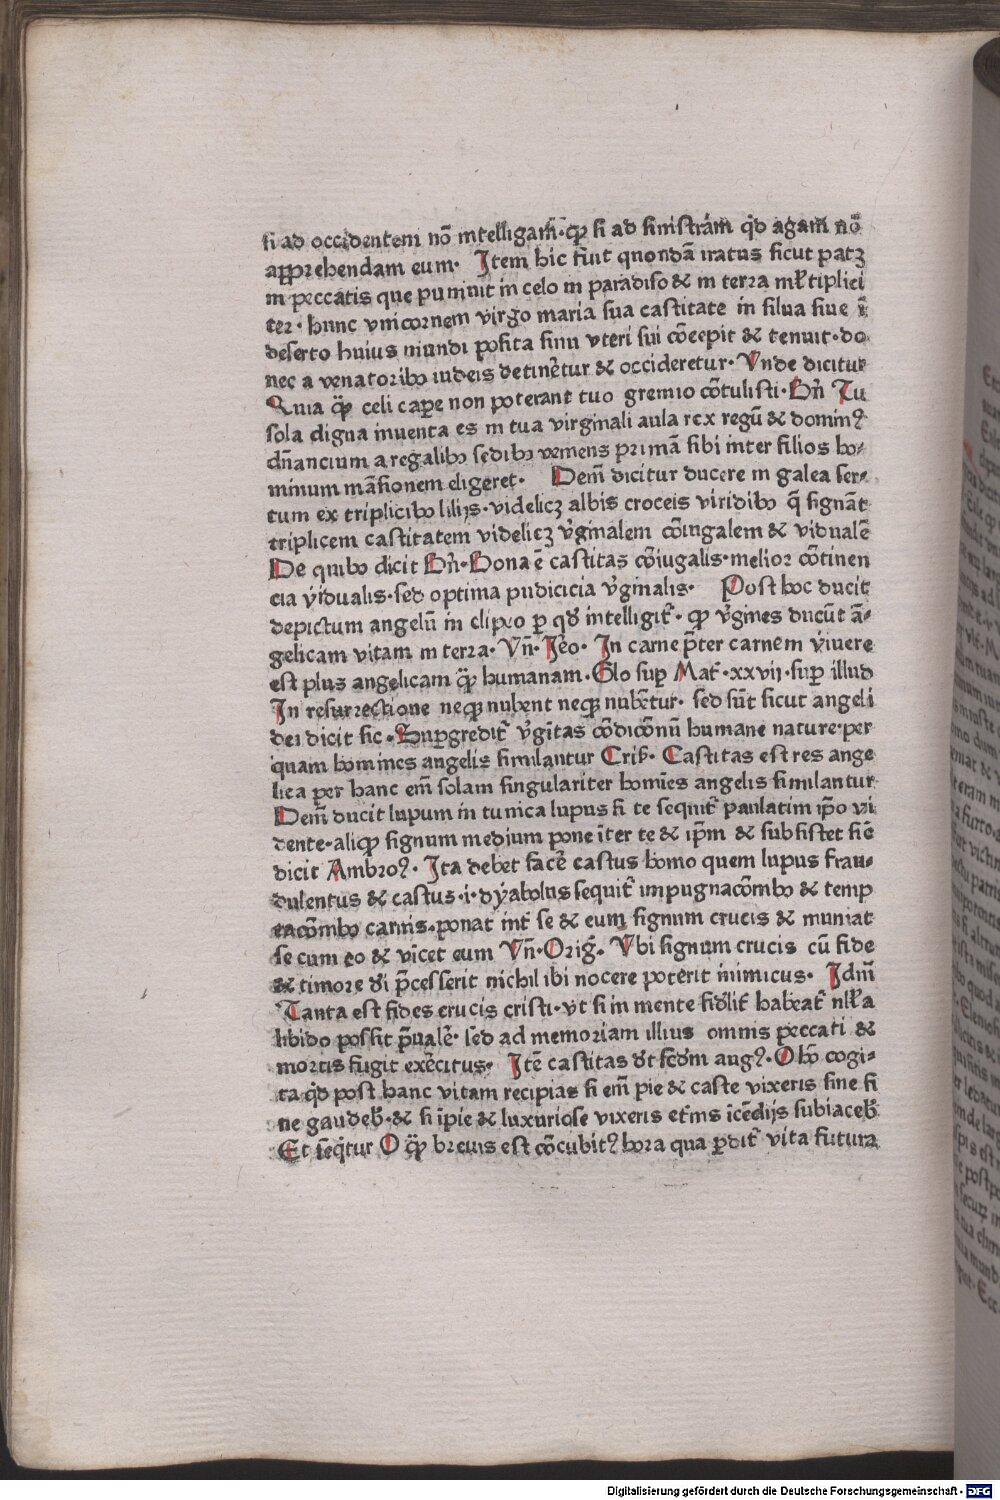 si ad occidentem nō intelligam̄·qꝫ si ad sinistrām qd agam nō
apprehendam eum· Item hic fuit quondā iratus sicut patꝫ
in peccatis que puniuit in celo in paradiso & in terra ml̄tiplici
ter·hunc vnicornem virgo maria sua castitate in silua siue ī
deserto huius mundi posita sinu vteri sui cōcepit & tenuit·do
nec a venatoribꝰ iudeis detineꝛ̄tur & occideretur·Vnde dicitur
Quia qꝫ̄ celi capere non poterant tuo gremio cōtulisti·Bn̄ Tu
sola digna inuenta es in tua virginali aula rex regū & dominꝰ
dn̄ancium a regalibꝰ sedibꝰ vemens primā sibi inter filios ho⸗
minum māsionem eligeret· Dem̄ dicitur ducere in galea ser⸗
tum ex triplicibꝰ liliis·videlicꝫ albis croceis viridibꝰ q̄ signāt
triplicem castitatem videlicꝫ v̄ginalem cōiugalem & vidualē
De quibꝰ dicit Bn̄·Bona ē castitas cōiugalis·melior cōtinen
cia vidualis·sed optima pudicicia v̄ginalis· Post hoc ducit
depictum angelū in clipeo ꝑ qd̄ intelligit̄·qꝫ v̄gines ducūt ā⸗
gelicam vitam in terra·Vn̄·Jeo·In carne p̄ter carnem viuere
est plus angelicam qꝫ̄ humanam·Glo sup̄ Mat̄·xxvij·sup̄ illud
In resurrectione neqꝫ nubent neqꝫ nubētur·sed sūt sicut angeli
dei dicit sic·Supgredit̄ v̄gītas cōdicōnū humane nature·per
quam homines angelis similantur Cris̄· Castitas est res ange
lica per hanc em̄ solam singulariter homīes angelis similantur
Dem̄ ducit lupum in tunica lupus si te sequit̄ paulatim ip̄o vi
dente·aliqꝫ signum medium pone īter te & ip̄m & subsistet sic̄
dicit Ambroꝰ· Ita debet facē castus homo quem lupus frau⸗
dulentus & castus·i·dyabolus sequit̄ impugnacōnibꝰ & temp
tacōnibꝰ carnis·ponat int̄ se & eum signum crucis & muniat
se cum eo & vicet eum Vn̄·Oriḡ· Vbi signum crucis cū fide
& timore di p̄cesserit nichil ibi nocere poterit inimicus· Idm̄
Tanta est fides crucis cristi·vt si in mente fidl̄it̄ habeat̄ nll̄a
libido possit p̄ualē·sed ad memoriam illius omnis peccati &
mortis fugit exc̄citus· Itē castitas dt̄ scdm̄ augꝰ·O hō cogi⸗
ta qd post hanc vitam recipias si em̄ pie & caste vixeris sine fi
ne gaudeb̄·& si īpie & luxuriose vixeris et̄nis īcēdijs subiaceb̄
Et seq̄tur O qꝫ̄ breuis est cōcubitꝰ hora qua ꝑdit̄ vita futura
Digitalisierung gefördert durch die Deutsche Forschungsgemeinschaft · DFG